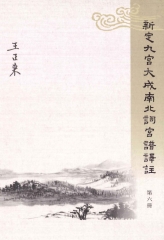 新定九宮大成南北詞宮譜譯註
第六冊
王正來